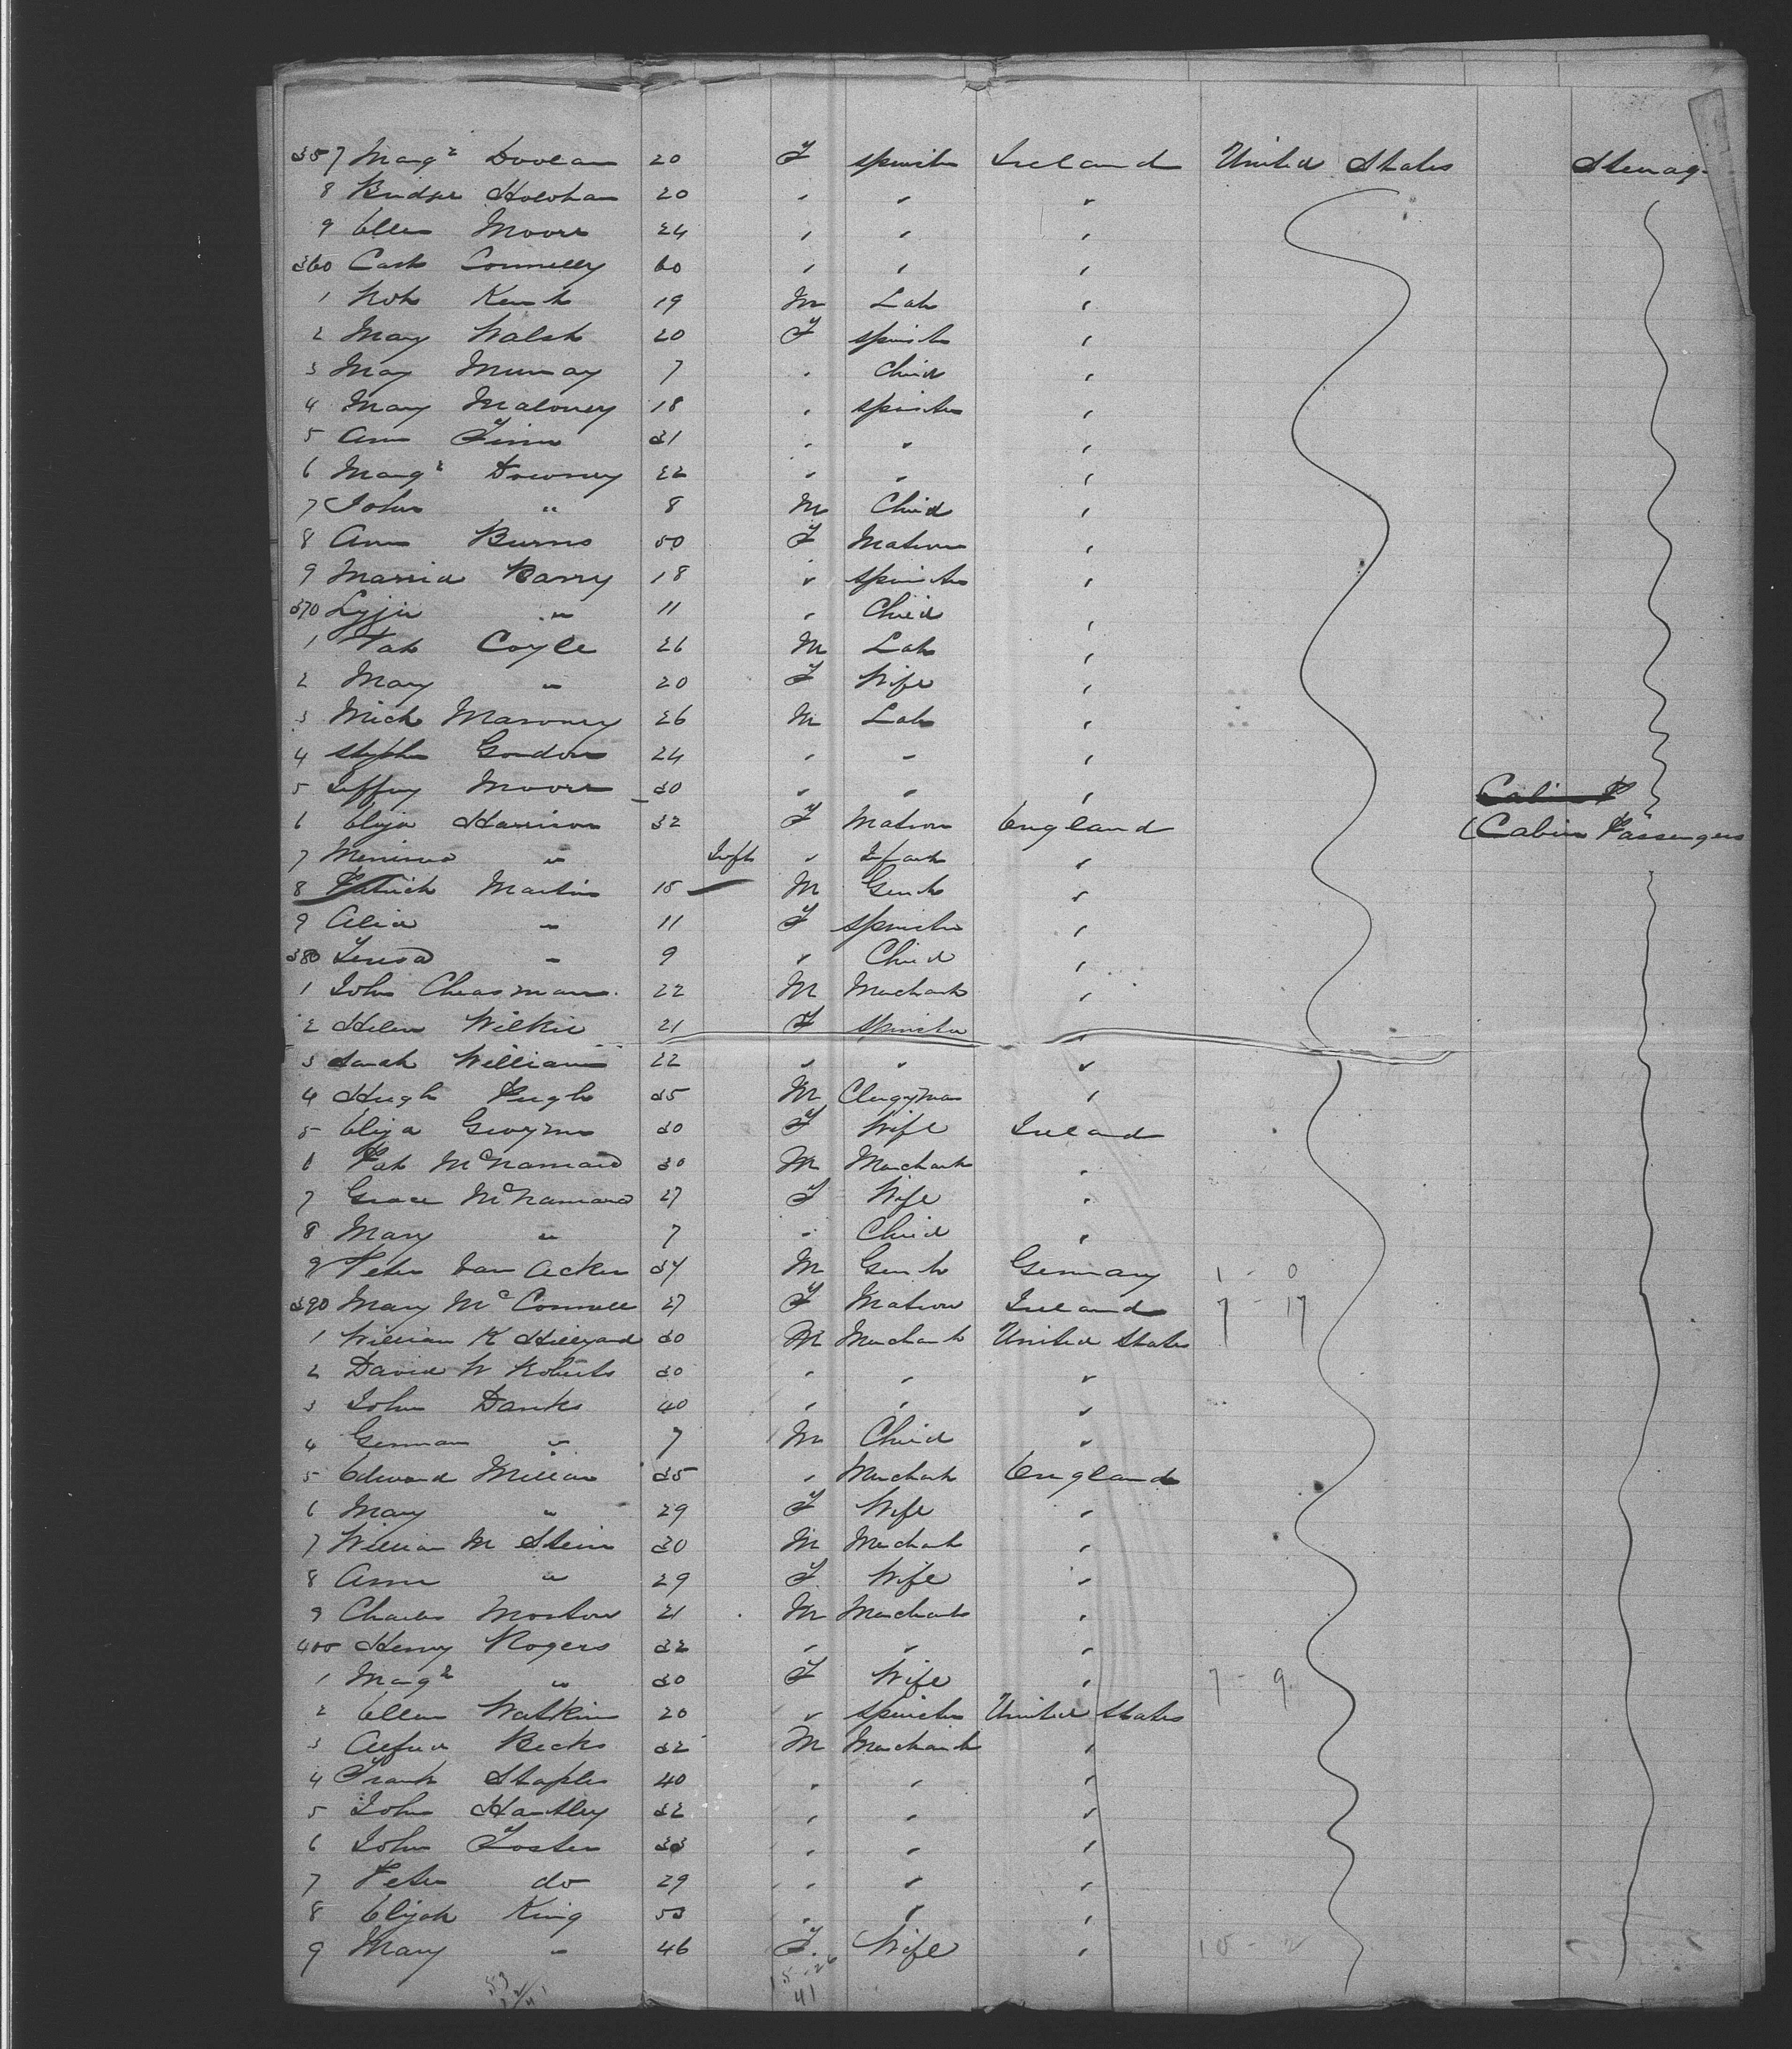 357 Margt Doolan 20 F Spinster Ireland United States Steerage
8 Bridget Holohan 20 " " "
9 Ellen Moore 24 " " "
360 Cath Connelly 60 " " "
1 Robt Kent 19 M Lab "
2 Mary Walsh 20 F Spinster "
3 May Murray 7 " Child "
4 Mary Maloney 18 " Spinster "
5 Ann Finn 31 " " "
6 Margt Downey 22 " " "
7 John " 8 M Child "
8 Ann Burns 50 F Matron "
9 Marria Barry 18 " Spinster "
370 Lizzie " 11 " Child "
1 Pat Coyle 26 M Lab "
2 Mary " 20 F Wife "
3 Mich Maroney 26 M Lab "
4 Stephen Gordon 24 " " "
5 Jeffrey Moore 30 " " "
6 Eliza Harrison 32 F Matron England Cabin Passengers
7 " Inft " Infant "
8 Patrick Martin 15 M Gent "
9 Alice " 11 F Spinster "
380 Teresa " 9 " Child "
1 John Cheasman 22 M Merchant "
2 Helen Wilkie 21 F Spinster "
3 Sarah Williams 22 " " "
4 Hugh Pugh 35 M Clergyman "
5 Eliza Gwoyne 30 F Wife Ireland
6 Pat McNamara 30 M Merchant "
7 Grace McNamara 27 F Wife "
8 Mary " 7 " Child "
9 Peter Van Acker 34 M Gent Germany 1 - 0
390 Mary McConnell 27 F Matron Ireland 7 - 17
1 William K Hillyard 30 M Merchant United States
2 David W Roberts 30 " " "
3 John Danks 40 " " "
4 German " 7 M Child "
5 Edward Millar 35 " Merchant England
6 Mary " 29 F Wife "
7 William M Stein 30 M Merchant "
8 Ann " 29 F Wife "
9 Charles Morton 21 M Merchant "
400 Henry Rogers 32 " " "
1 Margt " 30 F Wife " 7 - 9
2 Ellen Watkins 20 " Spinster United States
3 Alfred Becks 32 M Merchant "
4 Frank Staples 40 " " "
5 John Hartley 32 " " "
6 John Foster 33 " " "
7 Peter do 29 " " "
8 Elijah King 53 " " "
9 Mary " 46 F Wife " 10 - 2
15 - 26
41